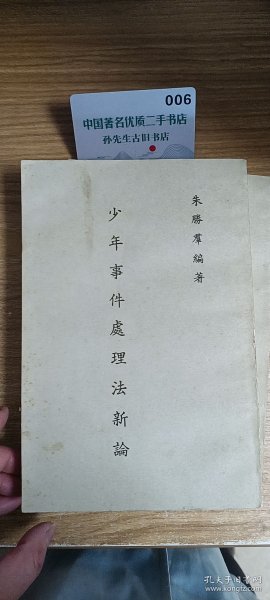 006
中国著名优质二手书店
孙先生古旧书店
朱勝羣編著
少年事件處理法新論
孔夫子旧书网
www.kongfz.com